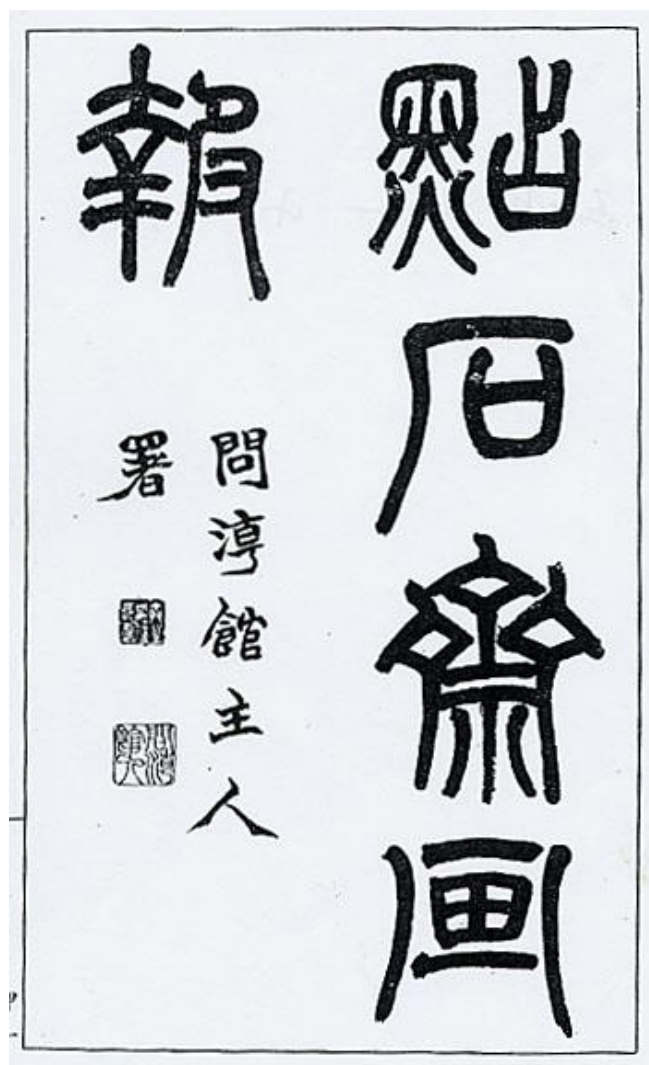 點石齋画
報
問渟館主人
署